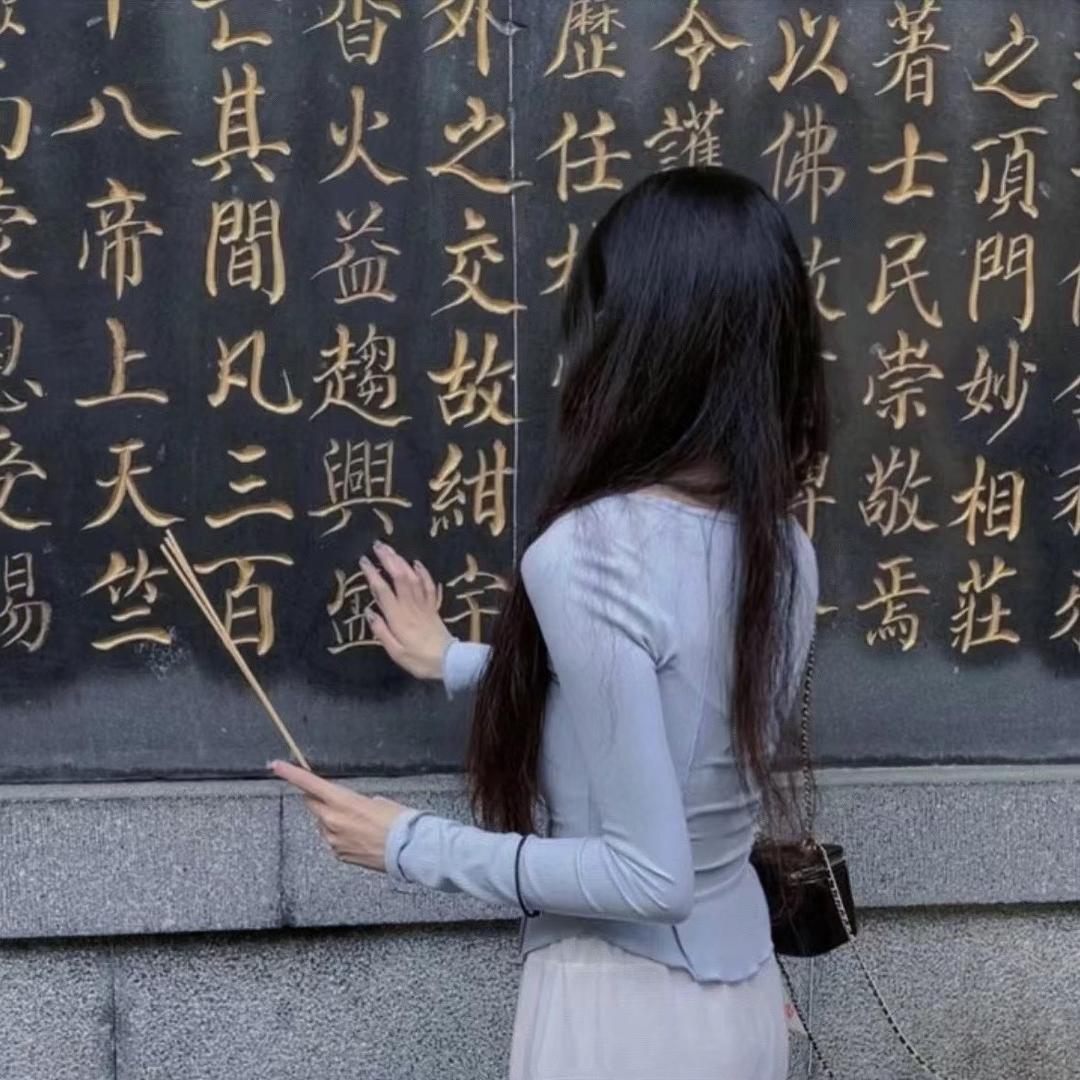 之頂門妙相莊
著士民崇敬焉
以佛
令護
歷任
外之交故紺宇
香火益趨興盛
其間凡三百
八帝上天竺
蒙恩受